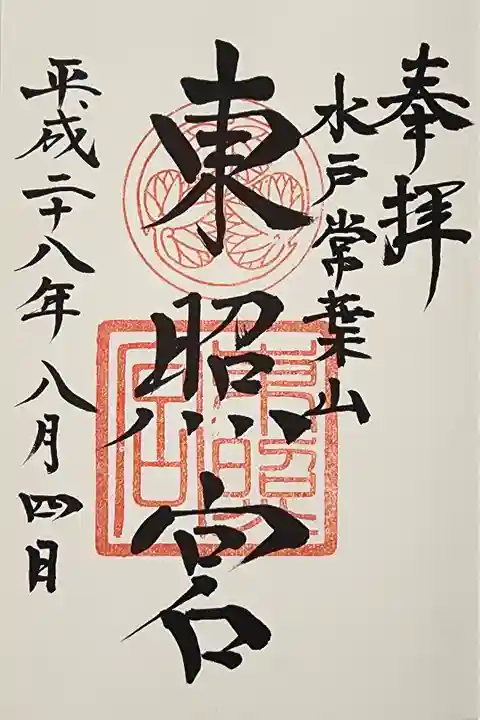 奉拝
水戸常葉山
東照宮
東照宮
平成二十八年八月四日